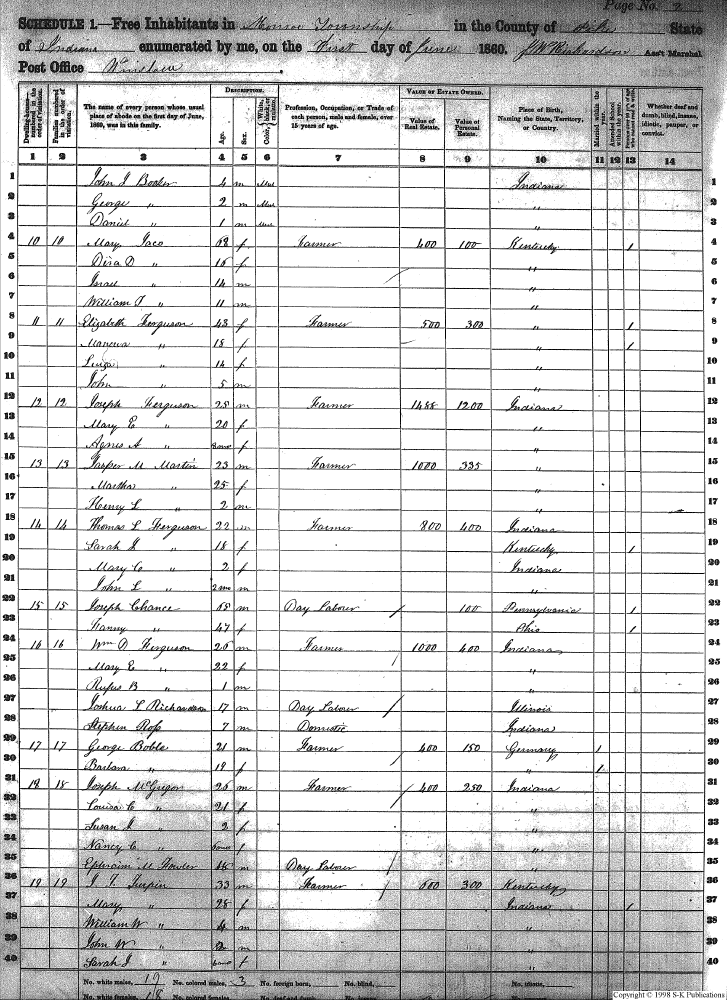 Page No. 2
SCHEDULE 1.—Free Inhabitants in Monroe Township in the County of Pike State
of Indiana enumerated by me, on the First day of June 1860. J W Richardson Ass't Marshal
Post Office Winslow.
Dwelling-houses numbered in the order of visitation.
Families numbered in the order of visitation.
The name of every person whose usual place of abode on the first day of June, 1860, was in this family.
DESCRIPTION.
Age.
Sex.
Color, White, black, or mulatto.
Profession, Occupation, or Trade of each person, male and female, over 15 years of age.
VALUE OF ESTATE OWNED.
Value of Real Estate.
Value of Personal Estate.
Place of Birth, Naming the State, Territory, or Country.
Married within the year.
Attended School within the year.
Whether deaf and dumb, blind, insane, idiotic, pauper, or convict.
1 2 3 4 5 6 7 8 9 10 11 12 13 14
1 John J Booker 4 m Mul Indiana 1
2 George " 2 m Mul " 2
3 Daniel " 1 m Mul " 3
4 10 10 Mary Jaco f Farmer 400 100 Kentucky 1 4
5 D " 16 f " 5
6 Israel " 14 m " 6
7 William T " 11 m " 7
8 11 11 Elizabeth Ferguson 43 f Farmer 500 300 " 1 8
9 " 18 f " 1 9
10 " 14 f " 10
11 John " 5 m " 11
12 12 12 Joseph Ferguson 25 m Farmer 1200 Indiana 12
13 Mary E " 20 f " 13
14 Agnes A " f " 14
15 13 13 Jasper M Martin 23 m Farmer 1000 335 " 15
16 Martha " 25 f " 16
17 Henry L " 2 m " 17
18 14 14 Thomas L Ferguson 22 m Farmer 800 400 Indiana 18
19 Sarah J " 18 f Kentucky 1 19
20 Mary C " 2 f Indiana 20
21 John L " 2 mo m " 21
22 15 15 Joseph Chance m Day Labour 100 Pennsylvania 1 22
23 " 47 f Ohio 1 23
24 16 16 Wm D Ferguson 26 m Farmer 1000 400 Indiana 24
25 Mary E " 22 f " 25
26 Rufus B " 1 m " 26
27 Joshua L Richardson 17 m Day Labour Illinois 27
28 Stephen Ross 7 m Domestic Indiana 28
29 17 17 George Boble 21 m Farmer 400 150 Germany 1 29
30 Barbara " 19 f " 1 30
31 18 18 Joseph McGrigor 26 m Farmer 400 250 Indiana 31
32 Louisa C " 21 f " 32
33 Susan J " 2 f " 33
34 Nancy C " f " 34
35 Ephraim M Fowler m Day Labour " 35
36 19 19 J T Turpin 33 m Farmer 300 Kentucky 36
37 Mary " 28 f Indiana 1 37
38 William W " 4 m " 38
39 John W " 2 m " 39
40 Sarah J " f " 40
No. white males, 19 No. colored males, 3 No. foreign born, No. blind, No. idiotic,
No. white females, 18 No. colored females,
Copyright © 1998 S-K Publications